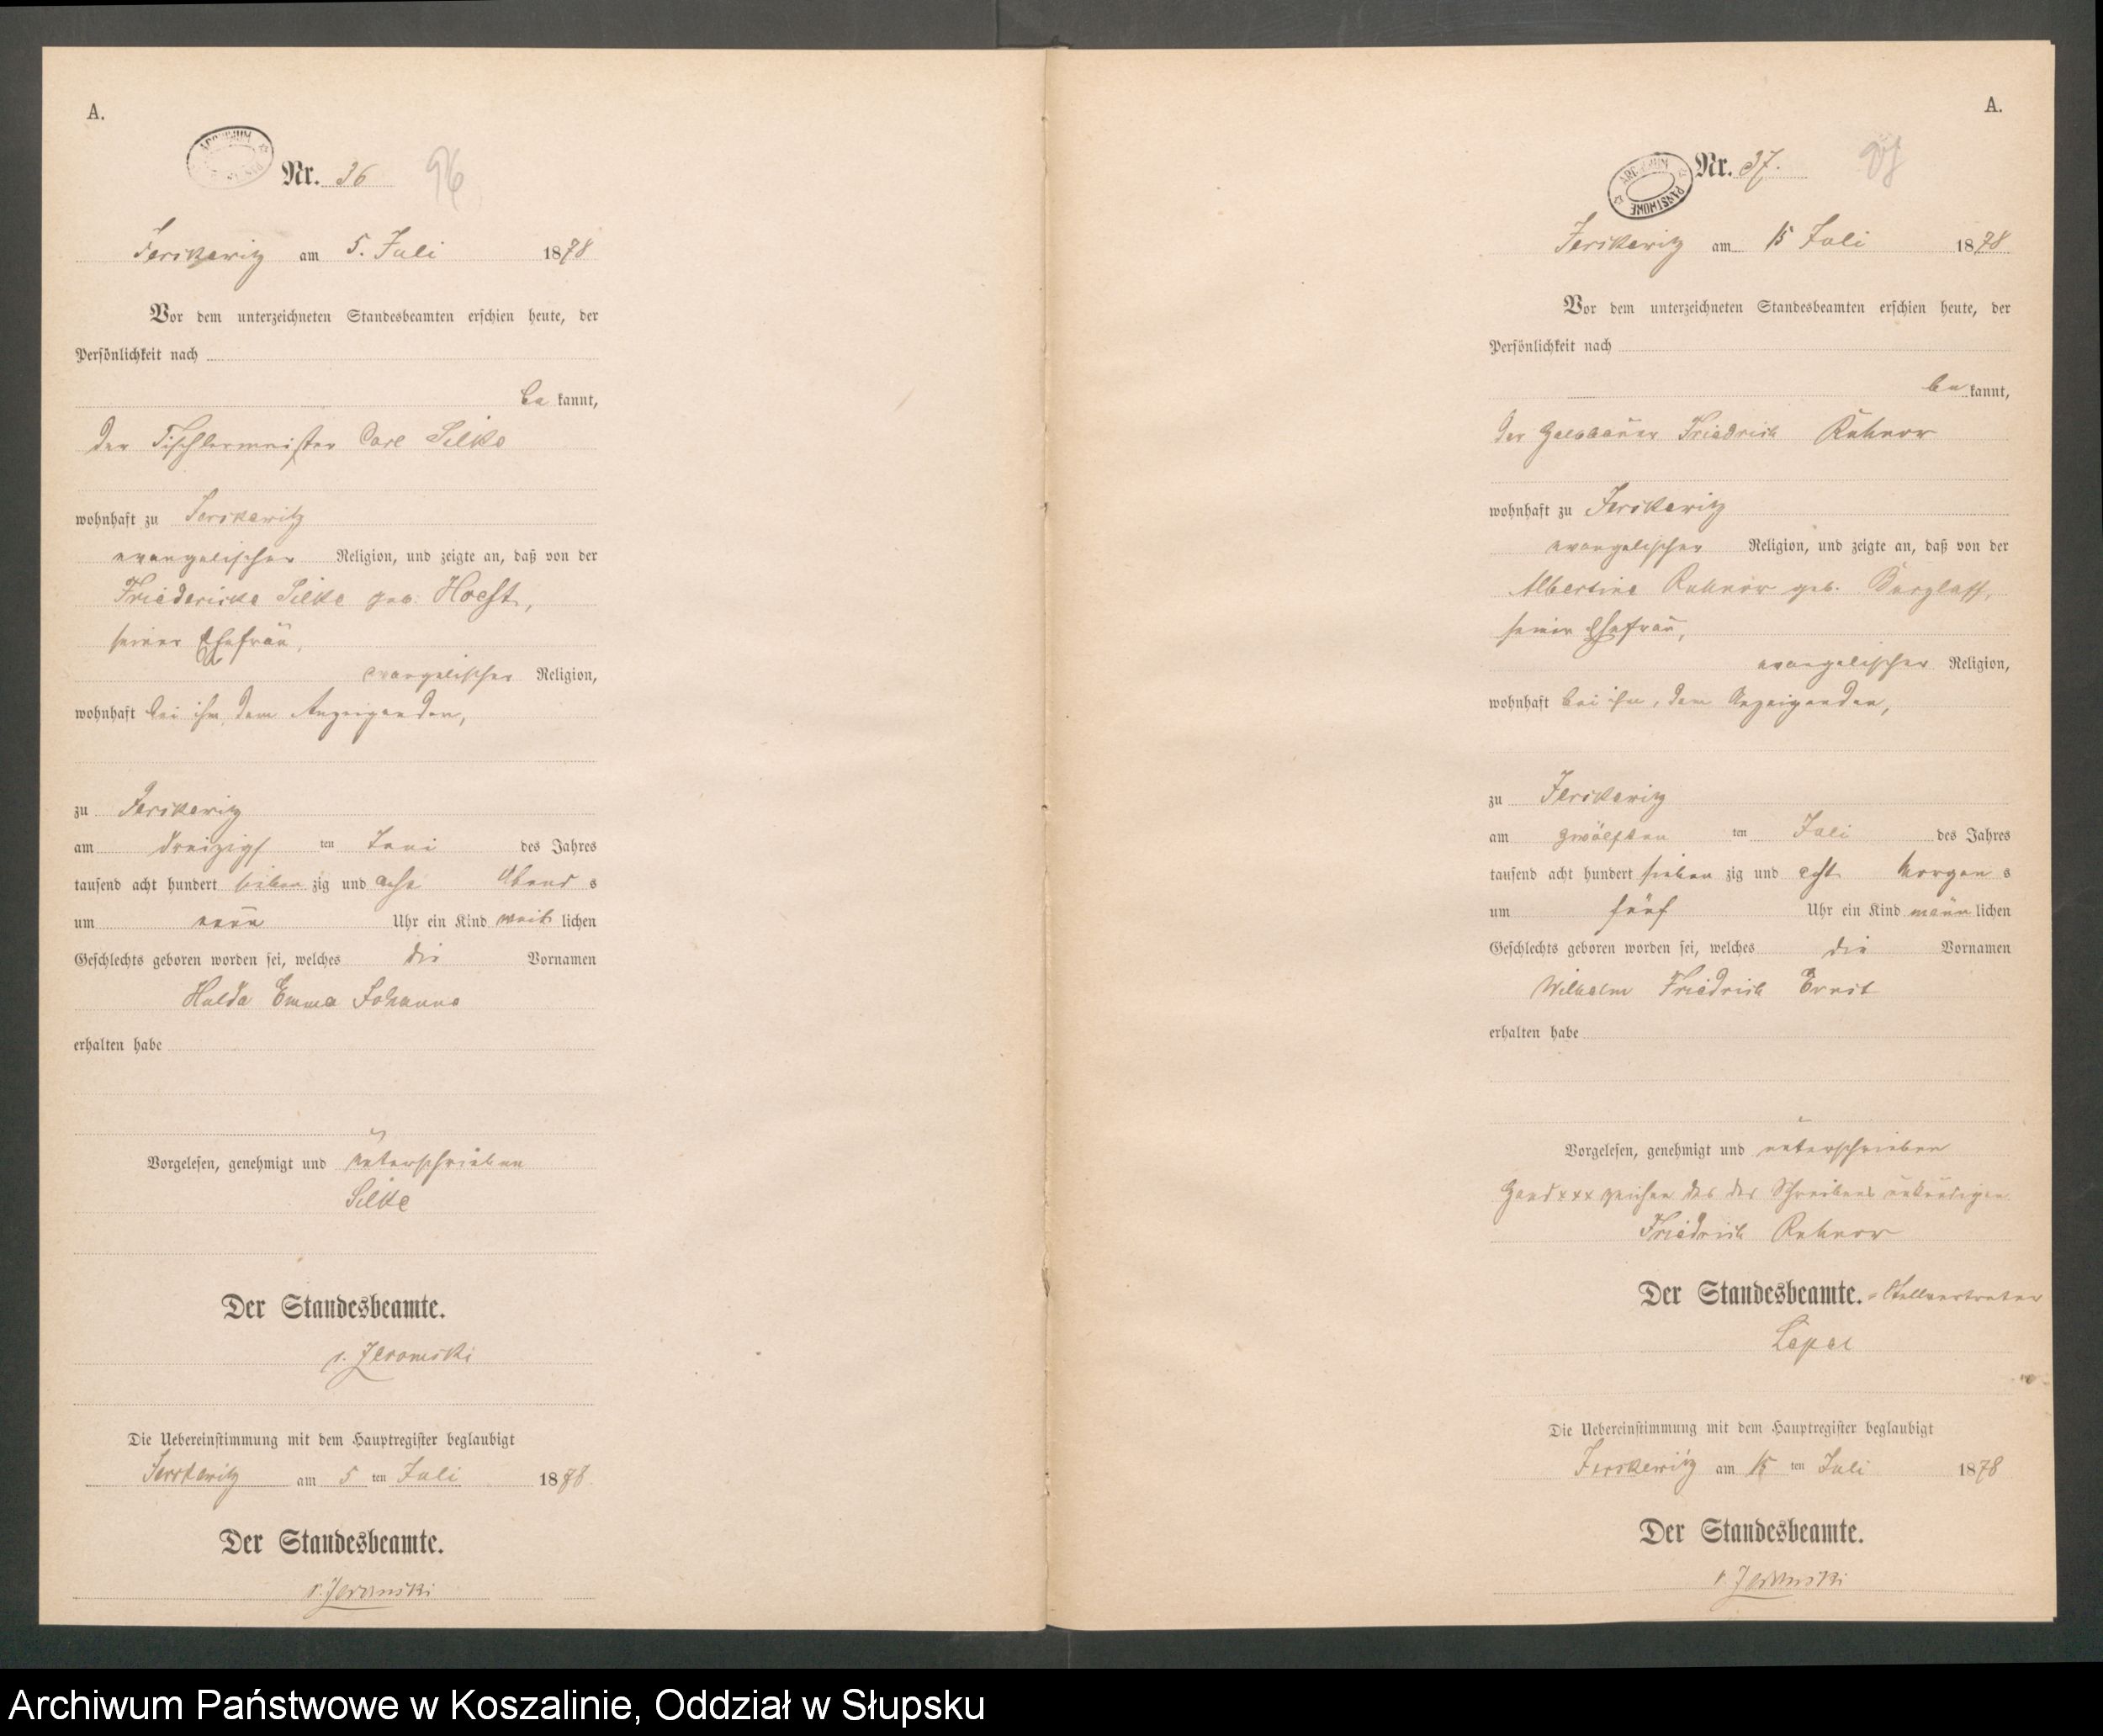 A.
ARCHIWUM
Nr. 36
96
Jerskewitz am 5. Juli 1878
Vor dem unterzeichneten Standesbeamten erschien heute, der
Persönlichkeit nach
be kannt,
der Tischlermeister Carl Silke
wohnhaft zu Jerskewitz
evangelischer Religion, und zeigte an, daß von der
Friedericke Silke geb. Hoeft,
seiner Ehefrau,
evangelischer Religion,
wohnhaft bei ihm, dem Anzeigenden,
zu Jerskewitz
am dreizigs ten Juni des Jahres
tausend acht hundert sieben zig und acht Abend s
um neun Uhr ein Kind weib lichen
Geschlechts geboren worden sei, welches die Vornamen
Hulda Emma Johanna
erhalten habe
Vorgelesen, genehmigt und unterschrieben
Silke
Der Standesbeamte.
v. Zeromski
Die Uebereinstimmung mit dem Hauptregister beglaubigt
Jerskewitz am 5 ten Juli 1878.
Der Standesbeamte.
v. Zeromski
A.
ARCHIWUM PAŃSTWOWE
Nr. 37.
97
Jerskewitz am 15 Juli 1878
Vor dem unterzeichneten Standesbeamten erschien heute, der
Persönlichkeit nach
be kannt,
der Halbbauer Friedrich Kuhnow
wohnhaft zu Jerskewitz
evangelischer Religion, und zeigte an, daß von der
Albertine Kuhnow geb. Burglaff,
seiner Ehefrau,
evangelischer Religion,
wohnhaft bei ihm, dem Anzeigenden,
zu Jerskewitz
am zwölften ten Juli des Jahres
tausend acht hundert sieben zig und acht Morgen s
um fünf Uhr ein Kind männ lichen
Geschlechts geboren worden sei, welches die Vornamen
Wilhelm Friedrich Ernst
erhalten habe
Vorgelesen, genehmigt und unterschrieben
Hand xxx zeichen des des Schreibens unkundigen
Friedrich Kuhnow
Der Standesbeamte. Stellvertreter
Die Uebereinstimmung mit dem Hauptregister beglaubigt
Jerskewitz am 15 ten Juli 1878
Der Standesbeamte.
v. Zeromski
Archiwum Państwowe w Koszalinie, Oddział w Słupsku